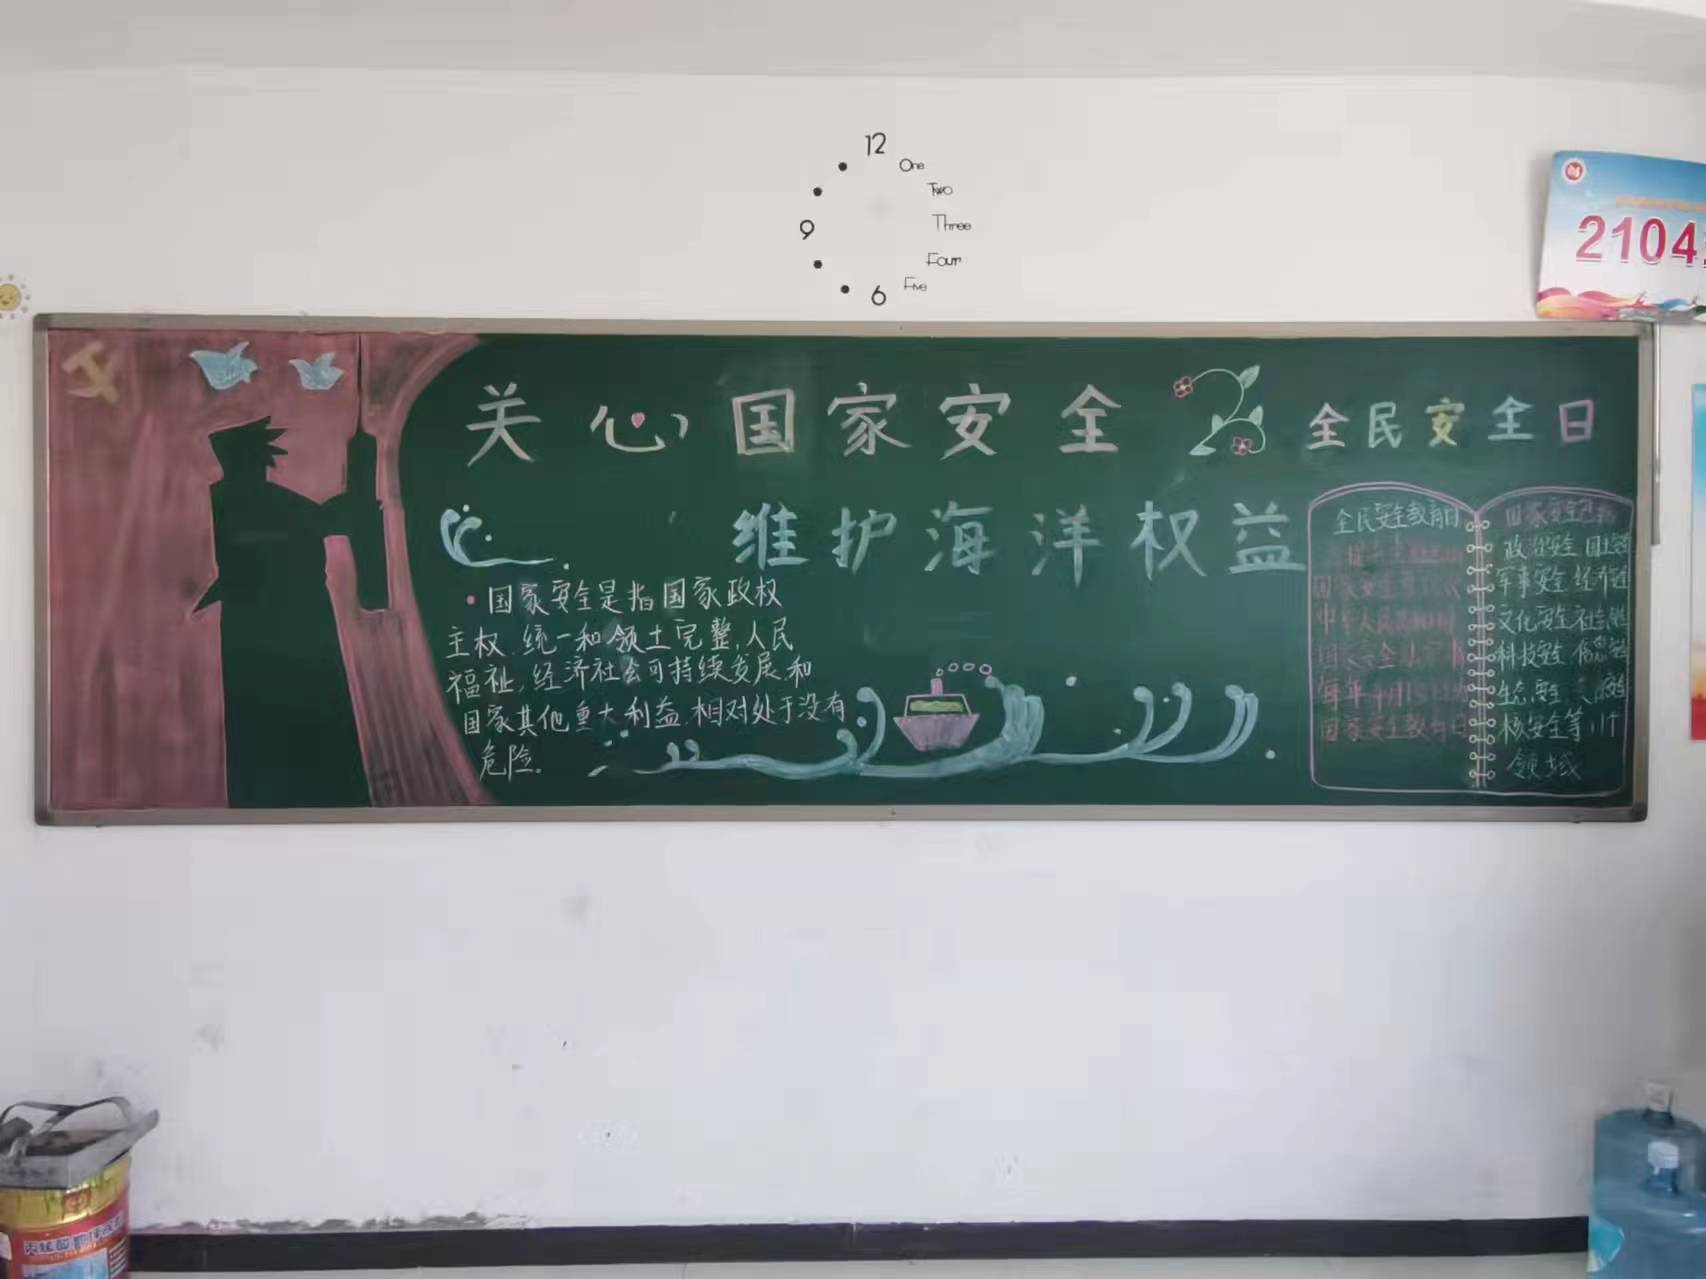 12
One
Two
Three
Four
Five
6
9
2104
关心国家安全
全民安全日
维护海洋权益
·国家安全是指国家政权
主权.统一和领土完整,人民
福祉,经济社会可持续发展.和
国家其他重大利益.相对处于没有
危险.
全民安全教育日
国家安全
每年4月15日
国家安全教育日
国家安全包括
政治安全 国土安全
军事安全 经济安全
文化安全 社会安全
科技安全 信息安全
生态安全
核安全等11个
领域